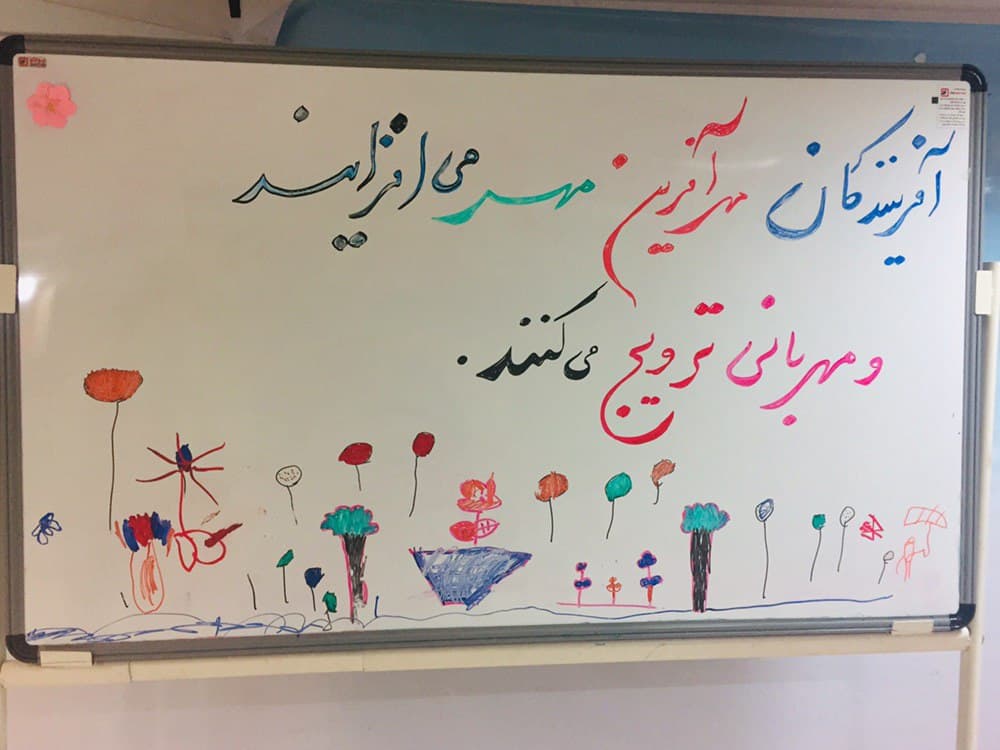 آفرینندگان مهرآفرین مهر می‌افزایند
و مهربانی ترویج می‌کنند.